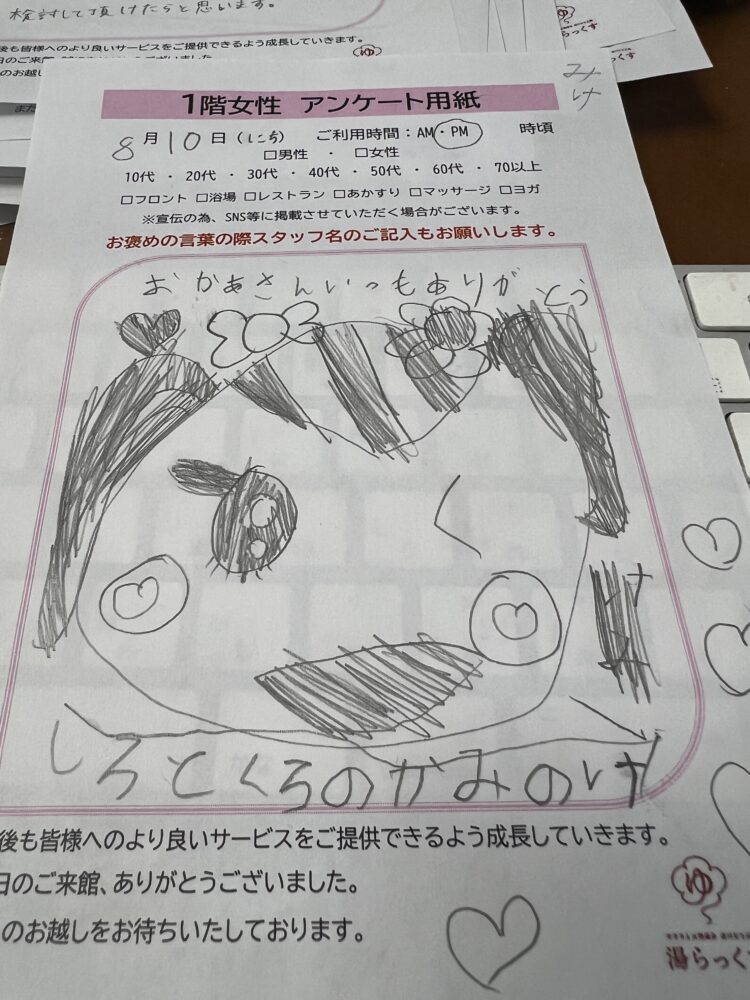 検討して頂けたらと思います。
後も皆様へのより良いサービスをご提供できるよう成長していきます。
ゆ
みけ
1階女性 アンケート用紙
8月10日(にち) ご利用時間:AM・PM 時頃
□男性 ・ □女性
10代 ・ 20代 ・ 30代 ・ 40代 ・ 50代 ・ 60代 ・ 70以上
□フロント □浴場 □レストラン □あかすり □マッサージ □ヨガ
※宣伝の為、SNS等に掲載させていただく場合がございます。
お褒めの言葉の際スタッフ名のご記入もお願いします。
おかあさんいつもありがとう
しろとくろのかみのけ
後も皆様へのより良いサービスをご提供できるよう成長していきます。
日のご来館、ありがとうございました。
のお越しをお待ちいたしております。
ゆ
湯らっくす